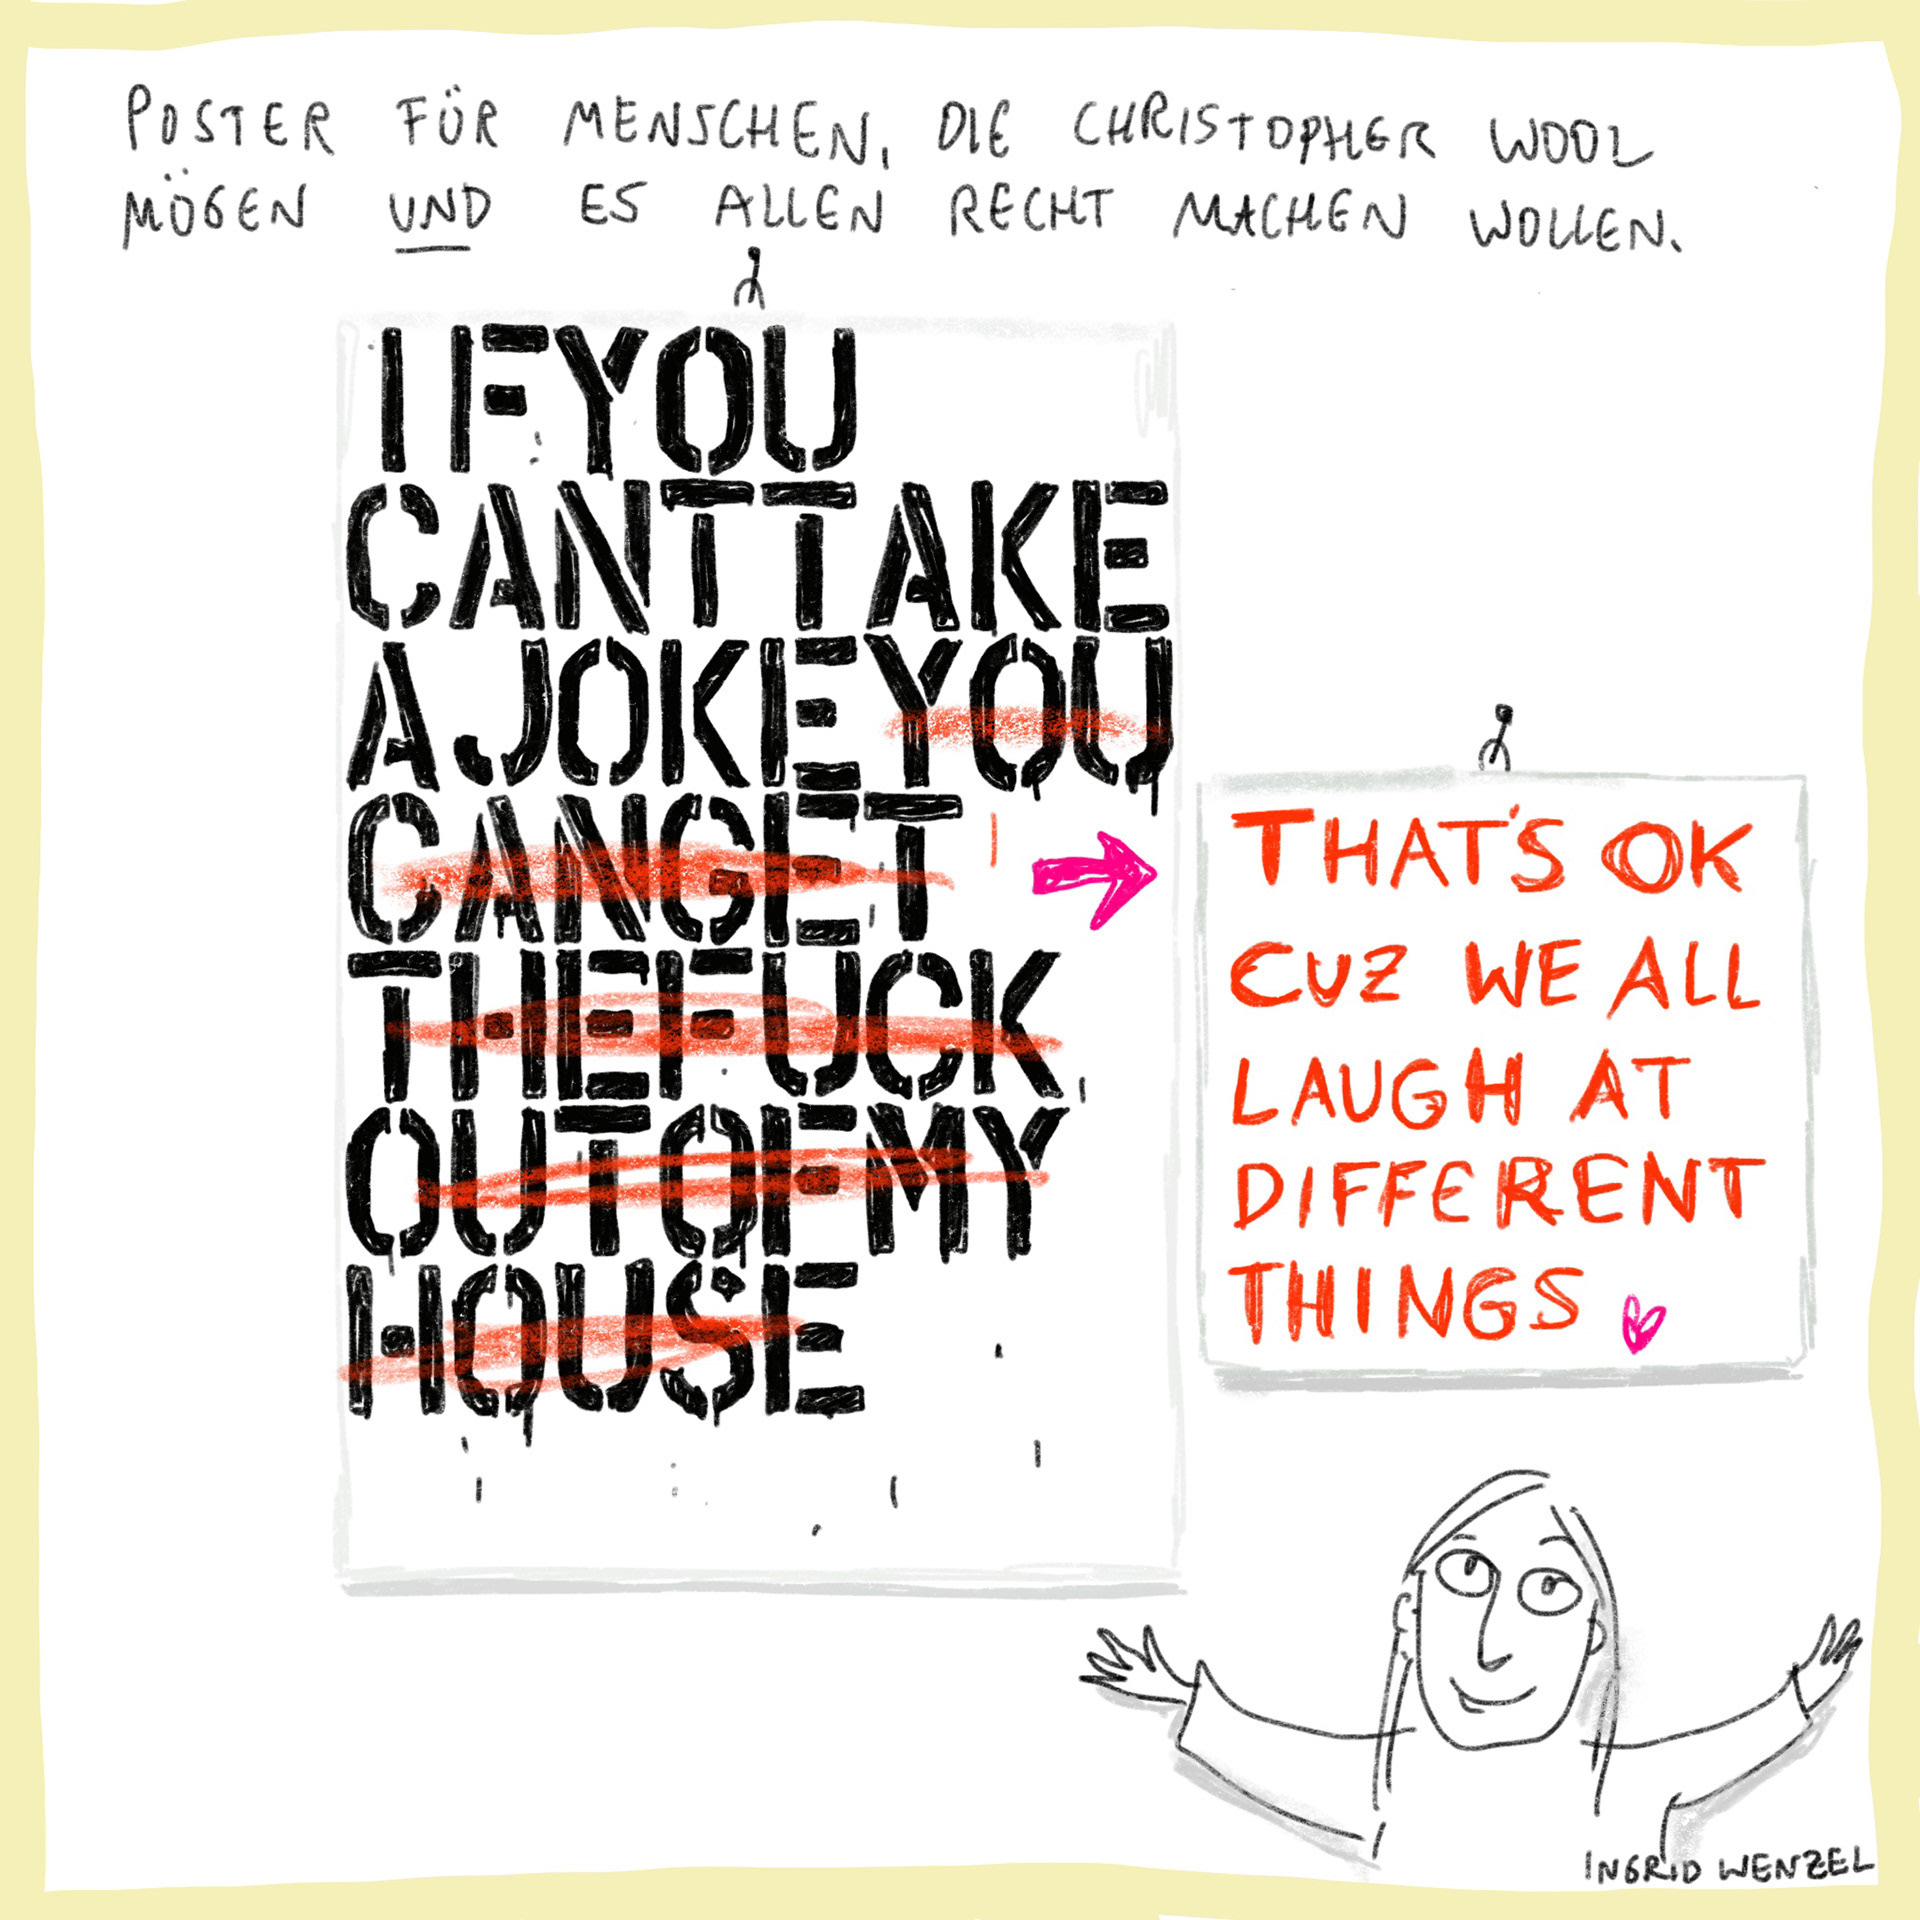 POSTER FÜR MENSCHEN, DIE CHRISTOPHER WOOL
MÖGEN UND ES ALLEN RECHT MACHEN WOLLEN.
IFYOU
CANTTAKE
AJOKEYOU
CANGET
THEFUCK
OUTOFMY
HOUSE
THAT'S OK
CUZ WE ALL
LAUGH AT
DIFFERENT
THINGS
INGRID WENZEL